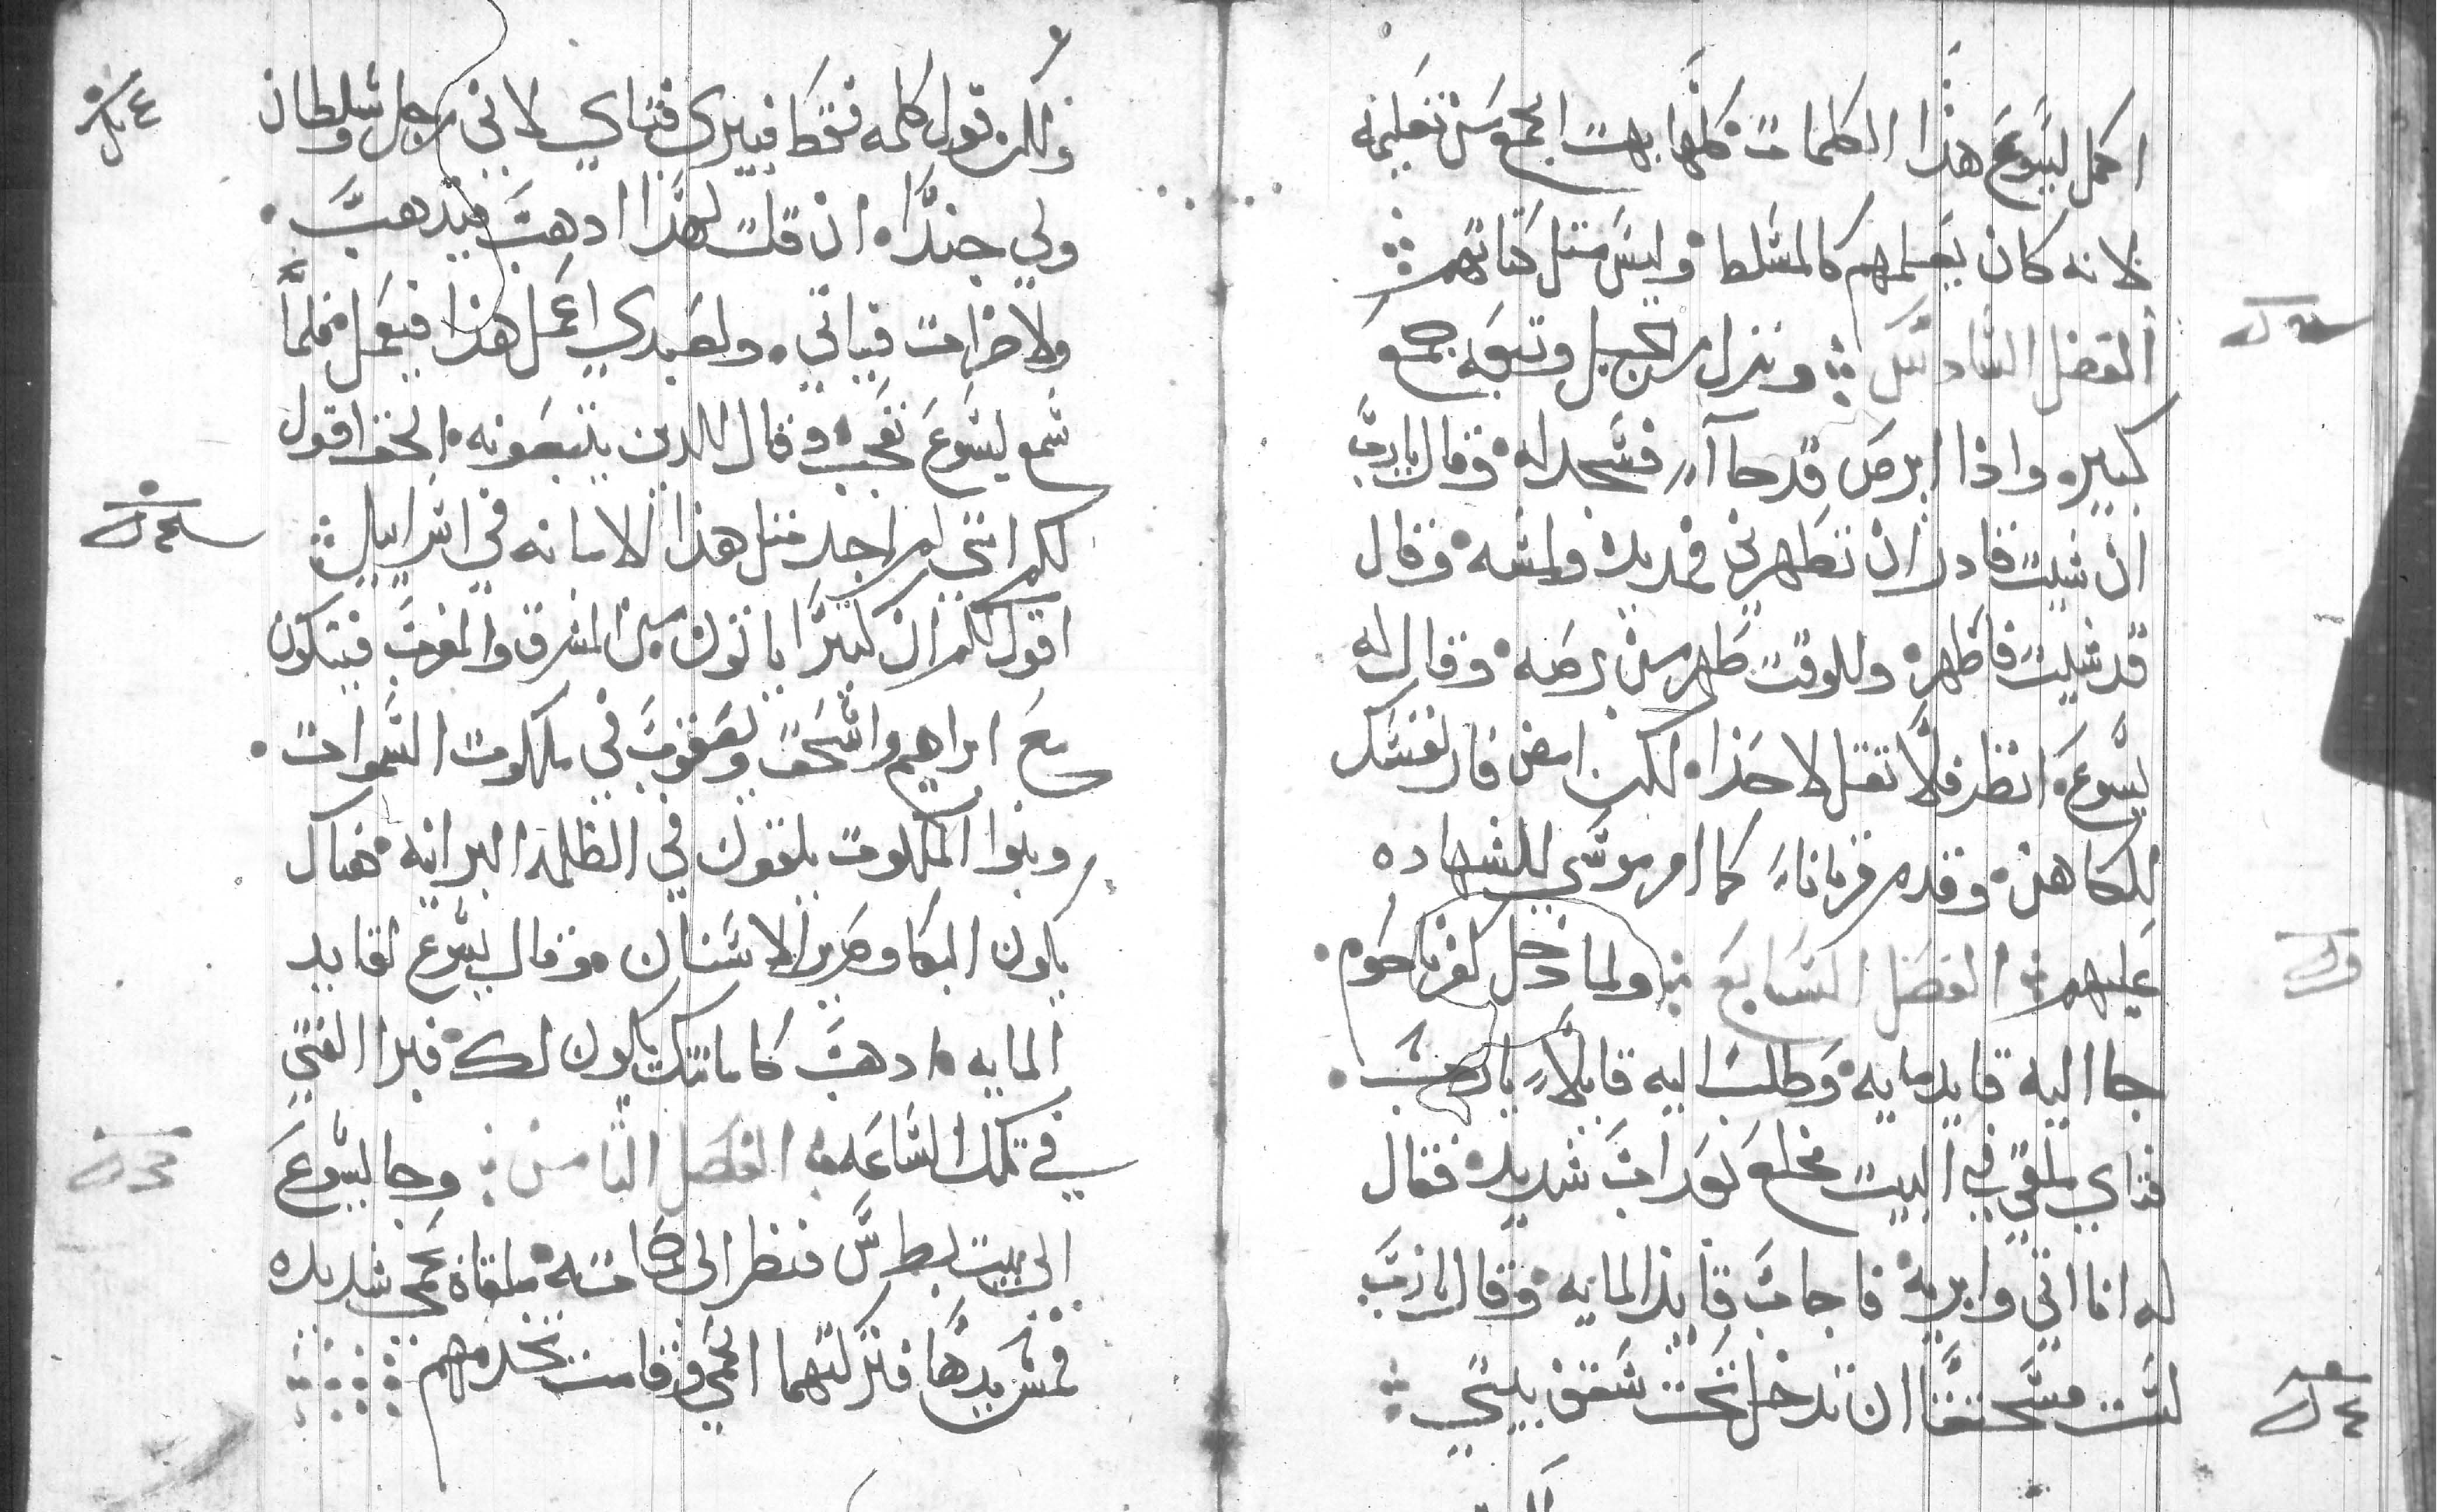 اكمل ليسوع هذا الكلمات كلها بهت الجمع من تعليمه
لانه كان يعلمهم كالمسلط وليس متل كتابهم
الفصل السادس ونزل من الجبل وتبعه جمع
كبير واذا ابرص قد جاآ فسجد له وقال يارب
ان شيت قادر ان تطهرني فمد يده ولمسه وقال
قد شيت فاطهر وللوقت طهر من برصه وقال له
يسوع انظر فلا تقل لاحدا لكن امض فار نفسك
للكاهن وقدم قربانا كما امر موسي للشهاده
عليهم الفصل السابع ولما دخل كفرناحوم
جا اليه قايد مايه وطلب اليه قايلا يارب
فتاي ملقي في البيت مخلع بعداب شديد فقال
له انا اتي وابريه فاجاب قايد المايه وقال يارب
لست مستحقا ان تدخل تحت سقف بيتي
ولكن قول كلمه فقط فيبري فتاي لاني رجل سلطان
ولي جندا ان قلت لهذا ادهب فيدهب
ولاخر ات فياتي ولعبدي اعمل هذا فيعمل فلما
سمع ليسوع تعجب وقال للدين يتبعونه الحق اقول
لكم انني لم اجد متل هذا الامانه في اسراييل
اقول لكم ان كتيرا ياتون من المشرق والمغرب فيتكون
مع ابراهيم واسحق ويعقوب في ملكوت السموات
وبنوا الملكوت يلقون في الظلمة البرانيه هناك
يكون البكا وصرير الاسنان وقال يسوع لقايد
المايه ادهب كامانتك يكون لك فبرا الفتي
في تلك الساعه الفصل التامن وجا ليسوع
الي بيت بطرس فنظر الي حماته ملقاة بحمي شديده
فمس يدها فتركتها الحمي وقامت تخدمهم